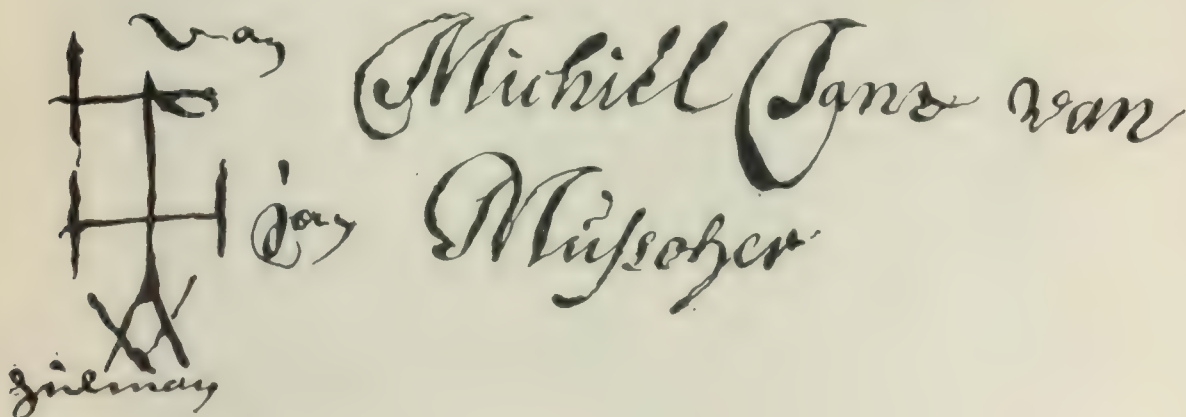 van
Michiel Janz van
jan
Mussoher
zuelman